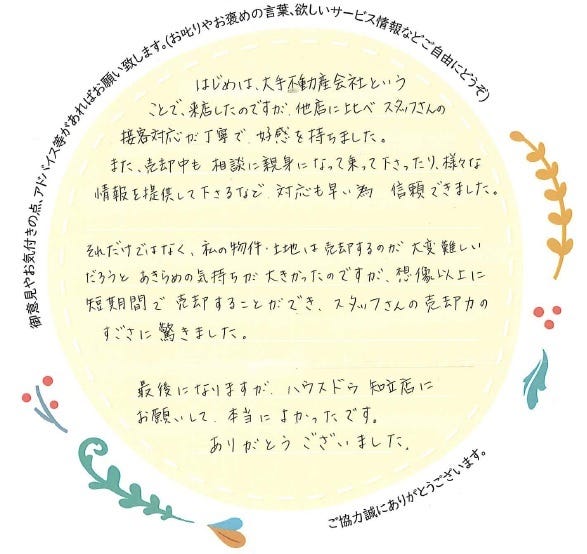 御意見やお気付きの点、アドバイス等があればお願い致します。(お叱りやお褒めの言葉、欲しいサービス情報などご自由にどうぞ)
はじめは、大手不動産会社という
ことで、来店したのですが、他店に比べ スタッフさんの
接客対応が丁寧で、好感を持ちました。
また、売却中も 相談に親身になって乗って下さったり、様々な
情報を提供して下さるなど、対応も早い為 信頼できました。
それだけではなく、私の物件・土地は売却するのが 大変難しい
だろうと あきらめの気持ちが大きかったのですが、想像以上に
短期間で 売却することができ、スタッフさんの売却力の
すごさに驚きました。
最後になりますが、ハウスドゥ 知立店に
お願いして、本当によかったです。
ありがとうございました。
ご協力誠にありがとうございます。